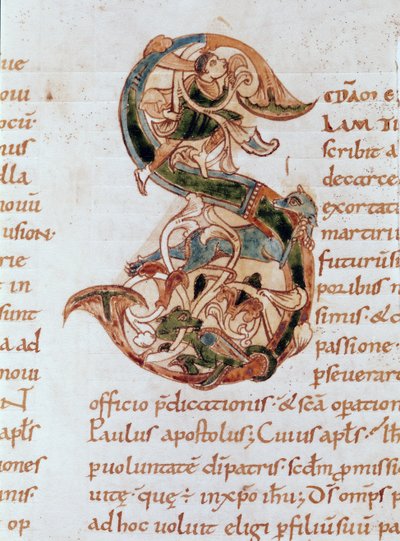 ue
oui
ocū
nus
lla
nouū
usion·
rie
t in
sunt
a ad
noui
N
apłs
nes
inis·
op
S
CDĀM E
LAM TI
scribit a
decarce
exortat
martiriu
futurū s
poribus n
simis· & c
passione·
ꝑseuerar
officio p̄dicationis· & scā operation
Paulus apostolus; Cuius apłs·
ꝑ uoluntatē dī patris· scd̄m ꝓmissi
uitę· quę ÷ in xp̄o ih̄u; Ds̄ omp̄s p
ad hoc uoluit eligi ꝑ filiū suū pa